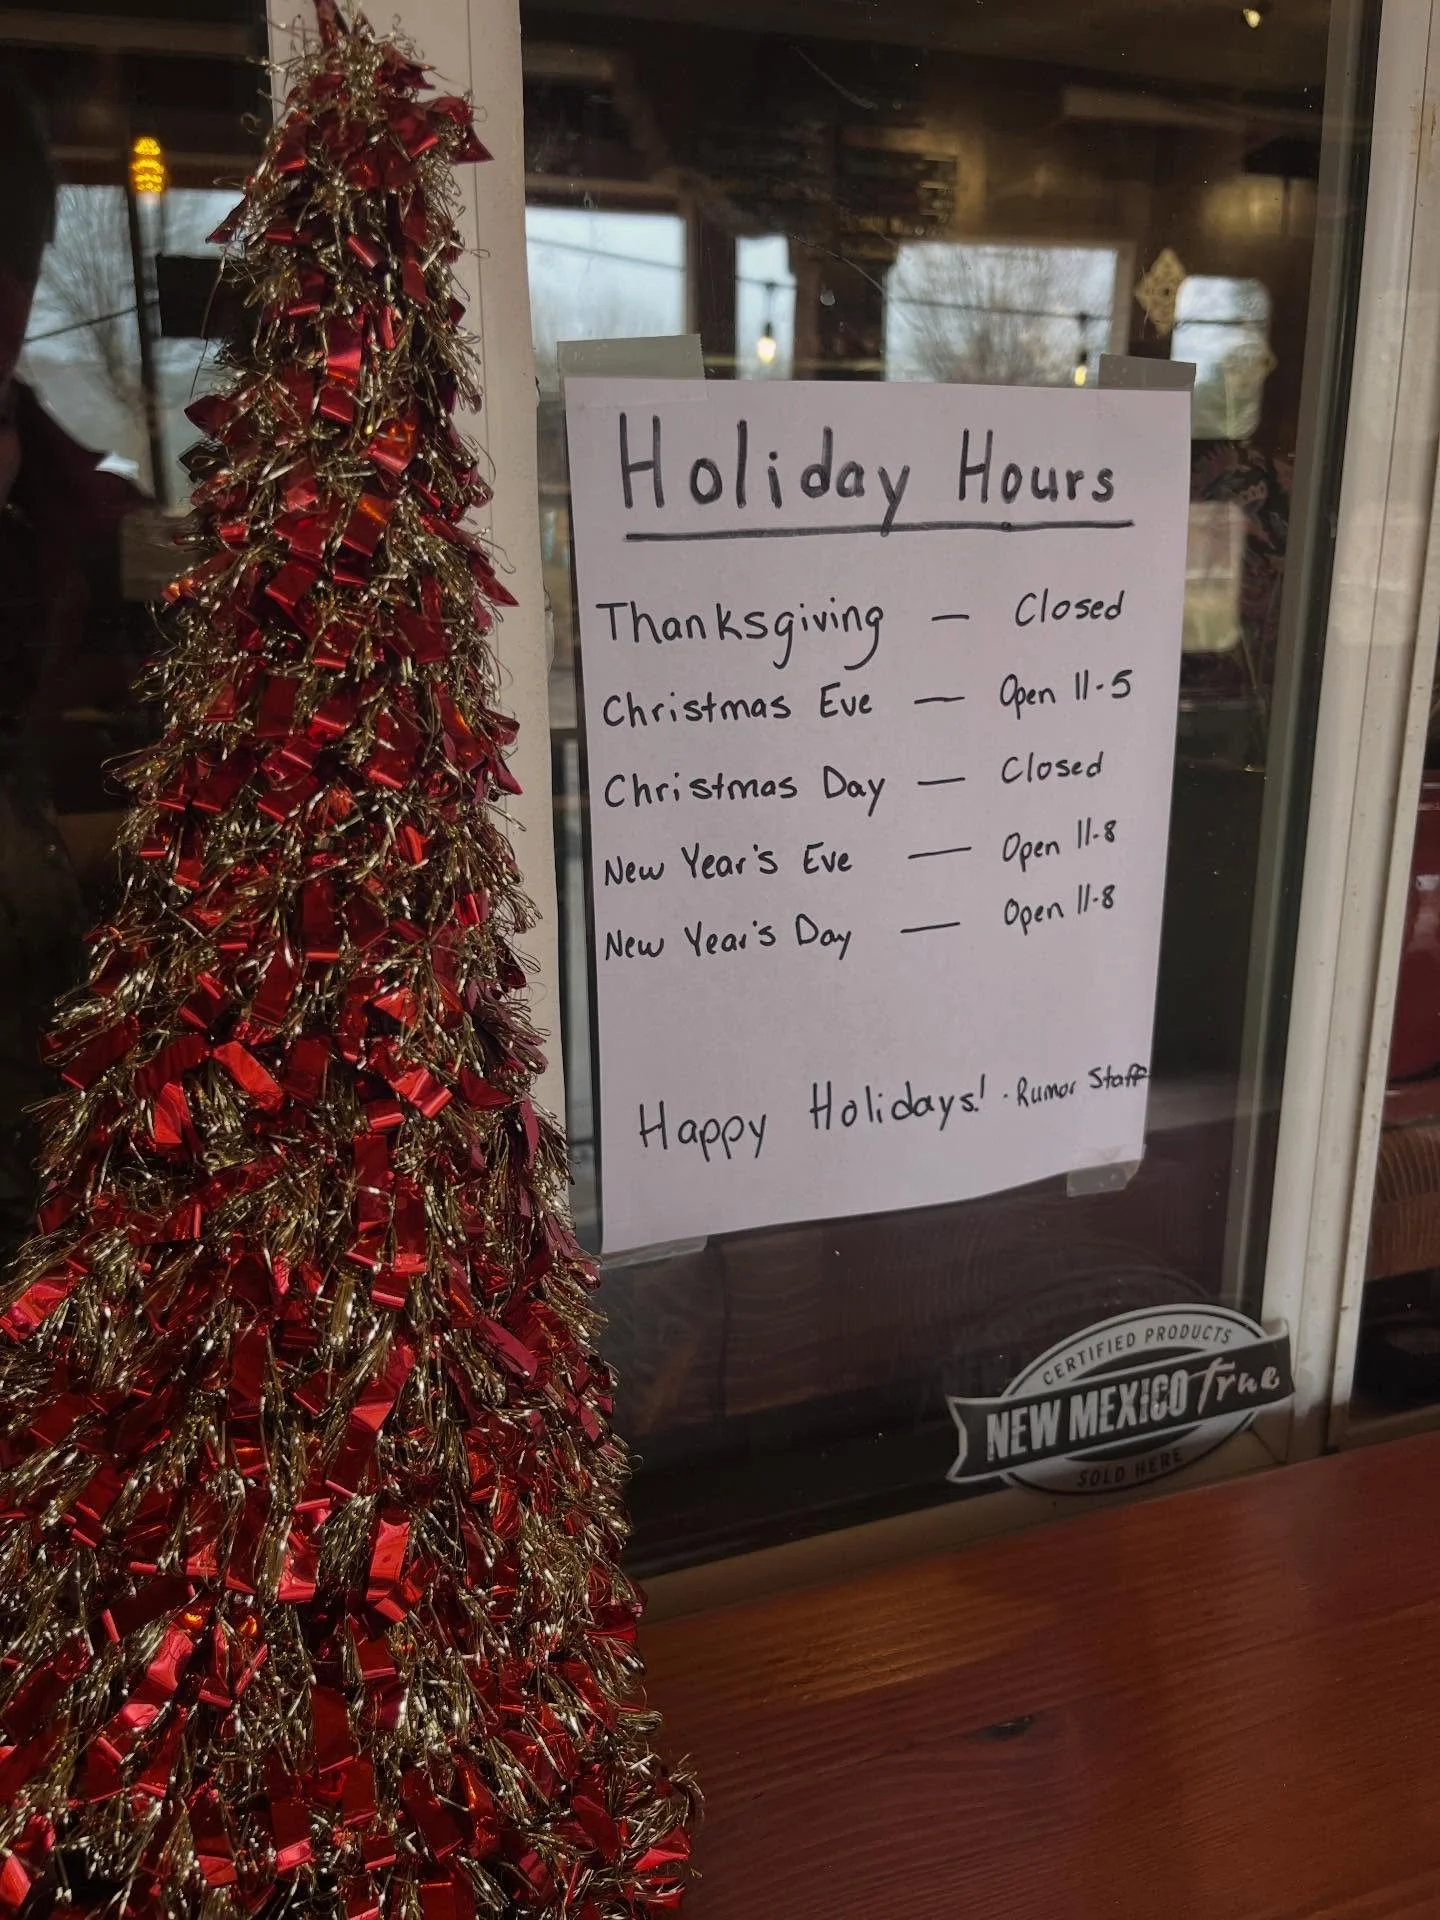 Holiday Hours
Thanksgiving — Closed
Christmas Eve — Open 11-5
Christmas Day — Closed
New Year's Eve — Open 11-8
New Year's Day — Open 11-8
Happy Holidays! - Rumor Staff
CERTIFIED PRODUCTS
NEW MEXICO True
SOLD HERE